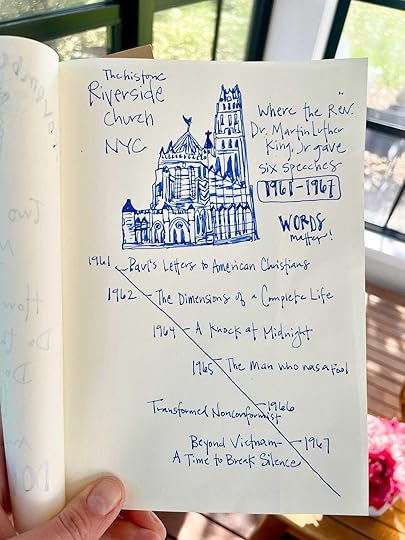 The historic
Riverside
Church
NYC
Where the Rev.
Dr. Martin Luther
King, Jr gave
six speeches
1961-1967
WORDS
matter!
1961 Paul's Letters to American Christians
1962 - The Dimensions of a Complete Life
1964 - A Knock at Midnight
1965 - The Man who was a Fool
1966
Transformed Nonconformist
Beyond Vietnam - 1967
A Time to Break Silence